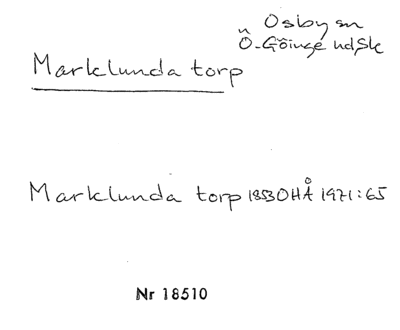 Osby sn
Ö-Göinge hd Sk
Marklunda torp
Marklunda torp 1853 OHÅ 1971:65
Nr 18510